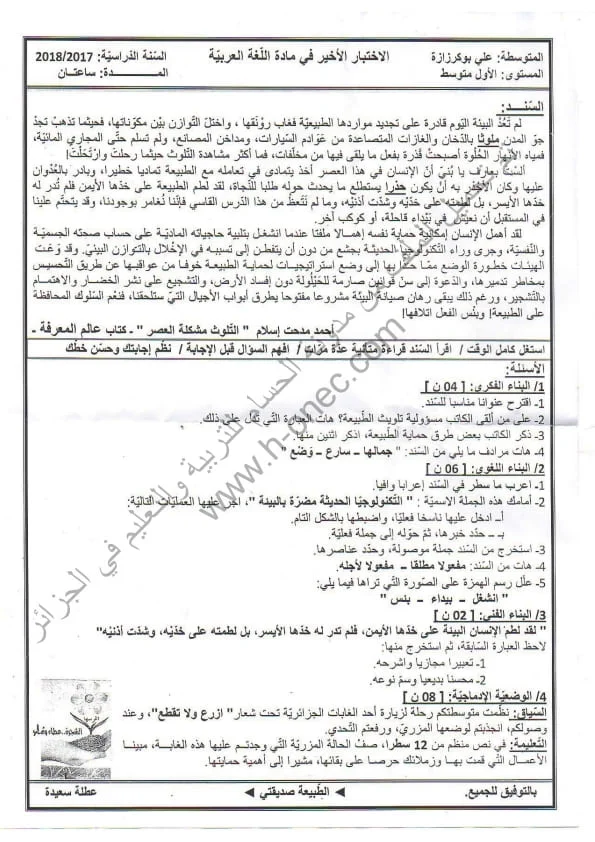 المتوسطة: علي بوكرزازة
الاختبار الأخير في مادة اللّغة العربيّة
السّنة الدّراسيّة: 2018/2017
المستوى: الأول متوسط
المـــدة: ساعتـان
السّنـد:
لم تَعُدْ البيئة اليَوم قادرة على تجديد مواردها الطبيعيّة فغاب رونقها ، واختلّ التّوازن بيْن مكوّناتها، فحيثما تذهبْ تجدْ
جوّ المدن ملوثا بالدّخان والغازات المتصاعدة من عَوادم السيّارات، ومداخن المصانع، ولم تسلم حتّى المجاري المائيّة،
فمياه الأنْهار الحُلْوة أصبحتْ قذرة بفعل ما يلقى فيها من مخلّفات، فما أكثر مشاهدة التّلوث حيثما رحلتَ وارْتَحَلْتَ!
ألستَ بعارف يا بُنيّ أنّ الإنسان في هذا العصر أخذ يتمادى في تعامله مع الطّبيعة تماديا خطيرا، وبادر بالعُدْوان
عليها وكان الأجْدر به أنْ يكون حذرا يستطلع ما يحدث حوله طلبا للنّجاة، لقد لطم الطّبيعة على خدّها الأيمن فلم تُدر له
خدّها الأيسر، بل لطمتْه على خدّيْه وشدّت أذنيْه، وما لم نتّعظْ من هذا الدّرس القاسي فإنّنا نُغامر بوجودنا، وقد يتحتّم علينا
في المستقبل أن نعيش في بيْداء قاحلة، أو كوكب آخر.
لقد أهمل الإنسان إمكانية حماية نفسه إهمالا ملفتا عندما انشغل بتلبية حاجياته الماديّة على حساب صحته الجسميّة
والنّفسيّة، وجرى وراء التّكنولوجيا الحديثة بجشع من دون أن يتفطن إلى تسببه في الإخْلال بالتّوازن البيئيّ. وقد وَعَت
الهيئات خطورة الوضع ممّا حذا بها إلى وضع استراتيجيات لحماية الطّبيعة خوفا من عواقبها عن طريق التّحسيس
بمخاطر تدميرها، والدّعوة إلى سنّ قوانين صارمة للحيْلولة دون إفساد الأرض، والتّشجيع على نشر الخضار والاهتمام
بالتّشجير، ورغم ذلك يبقى رهان صيانة البيئة مشروعا مفتوحا يطرق أبواب الأجيال التي ستلحقنا، فنعم السّلوك المحافظة
على الطّبيعة! وبئس الفعل اتلافها!
أحمد مدحت إسلام " التّلوث مشكلة العصر " ـ كتاب عالم المعرفة ـ
استغل كامل الوقت / اقرأ السّند قراءة متأنية عدّة مرّات / افهم السؤال قبل الإجابة / نظّم إجابتك وحسّن خطّك
الأسئلة:
1/ البناء الفكري: [ 04 ن ]
1- اقترح عنوانا مناسبا للسّند.
2- على من ألقى الكاتب مسؤولية تلويث الطّبيعة؟ هات العبارة التّي تدلّ على ذلك.
3- ذكر الكاتب بعض طرق حماية الطّبيعة، اذكر اثنين منها.
4- هات مرادف ما يلي من السّند: " جمالها ــ سارع ــ وَضع "
2/ البناء اللغوي: [ 06 ن ]
1- اعرب ما سطر في السّند إعرابا وافيا.
2- أمامك هذه الجملة الاسميّة : " التّكنولوجيّا الحديثة مضرّة بالبيئة "، اجر عليها العمليّات التّاليّة:
أ ــ ادخل عليها ناسخا فعليّا، واضبطها بالشكل التام.
ب ــ حدّد خبرها، ثمّ حوّله إلى جملة فعليّة.
3- استخرج من السّند جملة موصولة، وحدّد عناصرها.
4- هات من السّند: مفعولا مطلقا ــ مفعولا لأجله.
5- علّل رسم الهمزة على الصّورة التّي تراها فيما يلي:
" انشغل ــ بيداء ــ بئس "
3/ البناء الفني: [ 02 ن ]
" لقد لطم الإنسان البيئة على خدّها الأيمن، فلم تدر له خدّها الأيسر، بل لطمته على خدّيْه، وشدّت أذنيْه "
لاحظ العبارة السّابقة، ثم استخرج منها:
1- تعبيرا مجازيا واشرحه.
2- محسنا بديعيا وسمّ نوعه.
4/ الوضعيّة الإدماجيّة: [ 08 ن ]
السّياق: نظّمت متوسطتكم رحلة لزيارة أحد الغابات الجزائريّة تحت شعار" ازرع ولا تقطع"، وعند
وصولكم، انجذبتم لوضعها المزريّ، ورفعتم التّحدي.
التّعليمة: في نص منظم من 12 سطرا، صفْ الحالة المزريّة التّي وجدتم عليها هذه الغابــة، مبينـا
الأعمال التّي قمت بهــا وزملائك حرصا على بقائها، مشيرا إلى أهمية حمايتها.
بالتوفيق للجميع.
◄ الطّبيعة صديقتي ►
عطلة سعيدة
www.h-onec.com